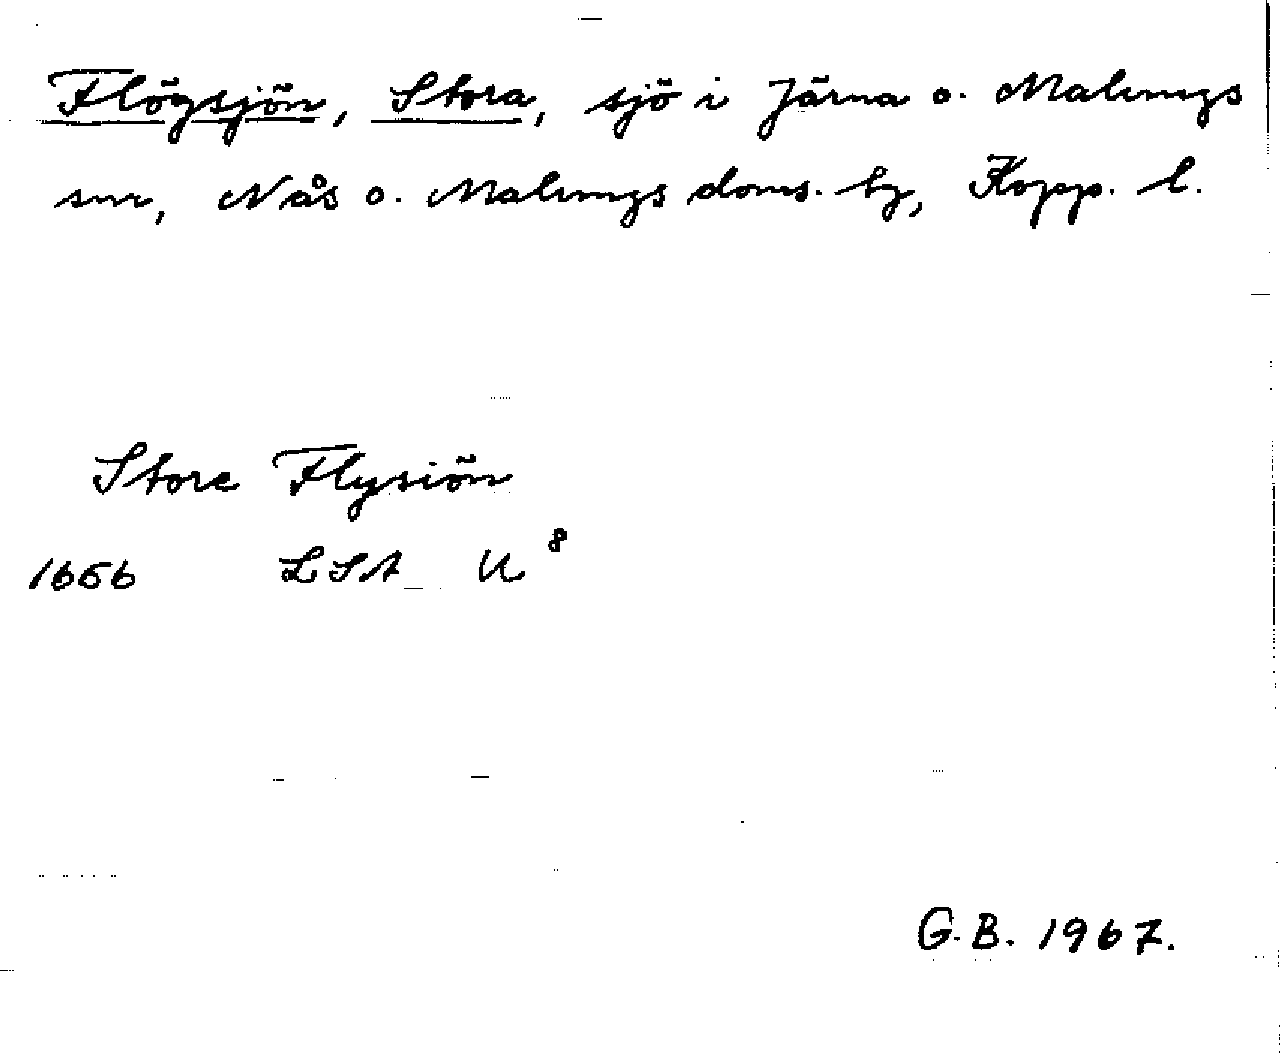 Flögsjön, Stora, sjö i Järna o. Malungs
snr, Nås o. Malungs doms. hg, Kopp. l.
Store Flysiön
1656 LSA U 8
G.B. 1967.